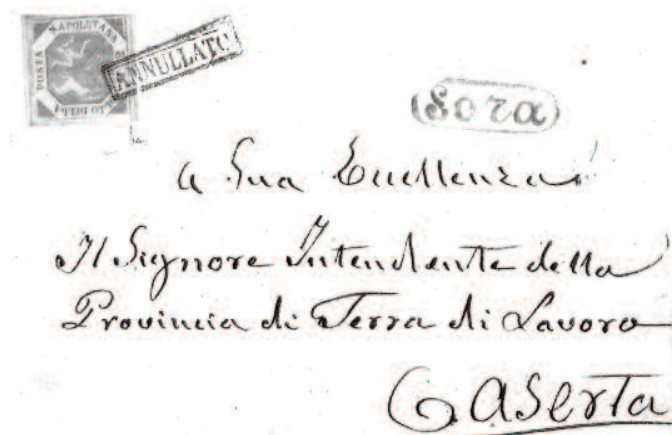 POSTA NAPOLETANA
ANNULLATO
Sora
a Sua Eccellenza
Il Signore Intendente della
Provincia di Terra di Lavoro
Caserta